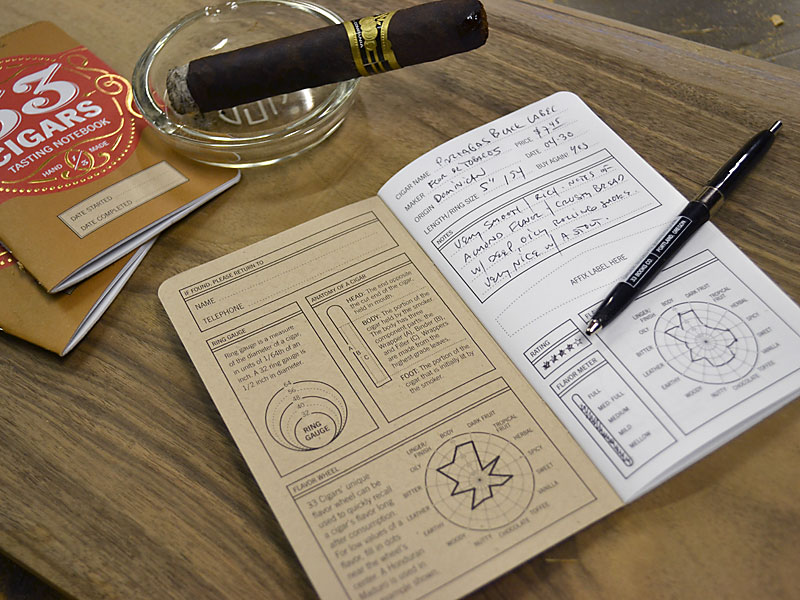 33
CIGARS
TASTING NOTEBOOK
HAND MADE
DATE STARTED
DATE COMPLETED
IF FOUND, PLEASE RETURN TO
NAME
TELEPHONE
RING GAUGE
Ring gauge is a measure
of the diameter of a cigar,
in units of 1/64th of an
inch. A 32 ring gauge is
1/2 inch in diameter.
64
56
48
40
32
RING
GAUGE
ANATOMY OF A CIGAR
A B C
HEAD: The end opposite
the cut end of the cigar,
held in mouth.
BODY: The portion of the
cigar held by the smoker.
The body has three
component parts, the
Wrapper (A), Binder (B),
and Filler (C). Wrappers
are made from the
highest grade leaves.
FOOT: The portion of the
cigar that is initially lit by
the smoker.
FLAVOR WHEEL
33 Cigars' unique
flavor wheel can be
used to quickly recall
a cigar's flavor long
after consumption.
For low values of a
flavor, fill in dots
near the wheel's
center. A Honduran
Maduro is used in
sample shown.
BODY
DARK FRUIT
TROPICAL
FRUIT
HERBAL
SPICY
SWEET
VANILLA
TOFFEE
CHOCOLATE
NUTTY
WOODY
EARTHY
LEATHER
BITTER
OILY
LINGER/
FINISH
CIGAR NAME PARTAGAS BLACK LABEL
MAKER FLOR DE TOBACOS PRICE $7.45
ORIGIN DOMINICAN DATE 04.30
LENGTH/RING SIZE 5" / 54 BUY AGAIN? YES
NOTES
VERY SMOOTH / RICH. NOTES OF
ALMOND FLAVOR / CRUSTY BREAD
W/ DEEP, OILY ROLLING SMOKE.
VERY NICE W/ A STOUT.
AFFIX LABEL HERE
RATING
FLAVOR METER
FULL
MED. FULL
MEDIUM
MILD
MELLOW
LINGER/
FINISH
BODY
DARK FRUIT
TROPICAL
FRUIT
HERBAL
SPICY
SWEET
VANILLA
TOFFEE
CHOCOLATE
NUTTY
WOODY
EARTHY
LEATHER
BITTER
OILY
33 BOOKS CO PORTLAND, OREGON